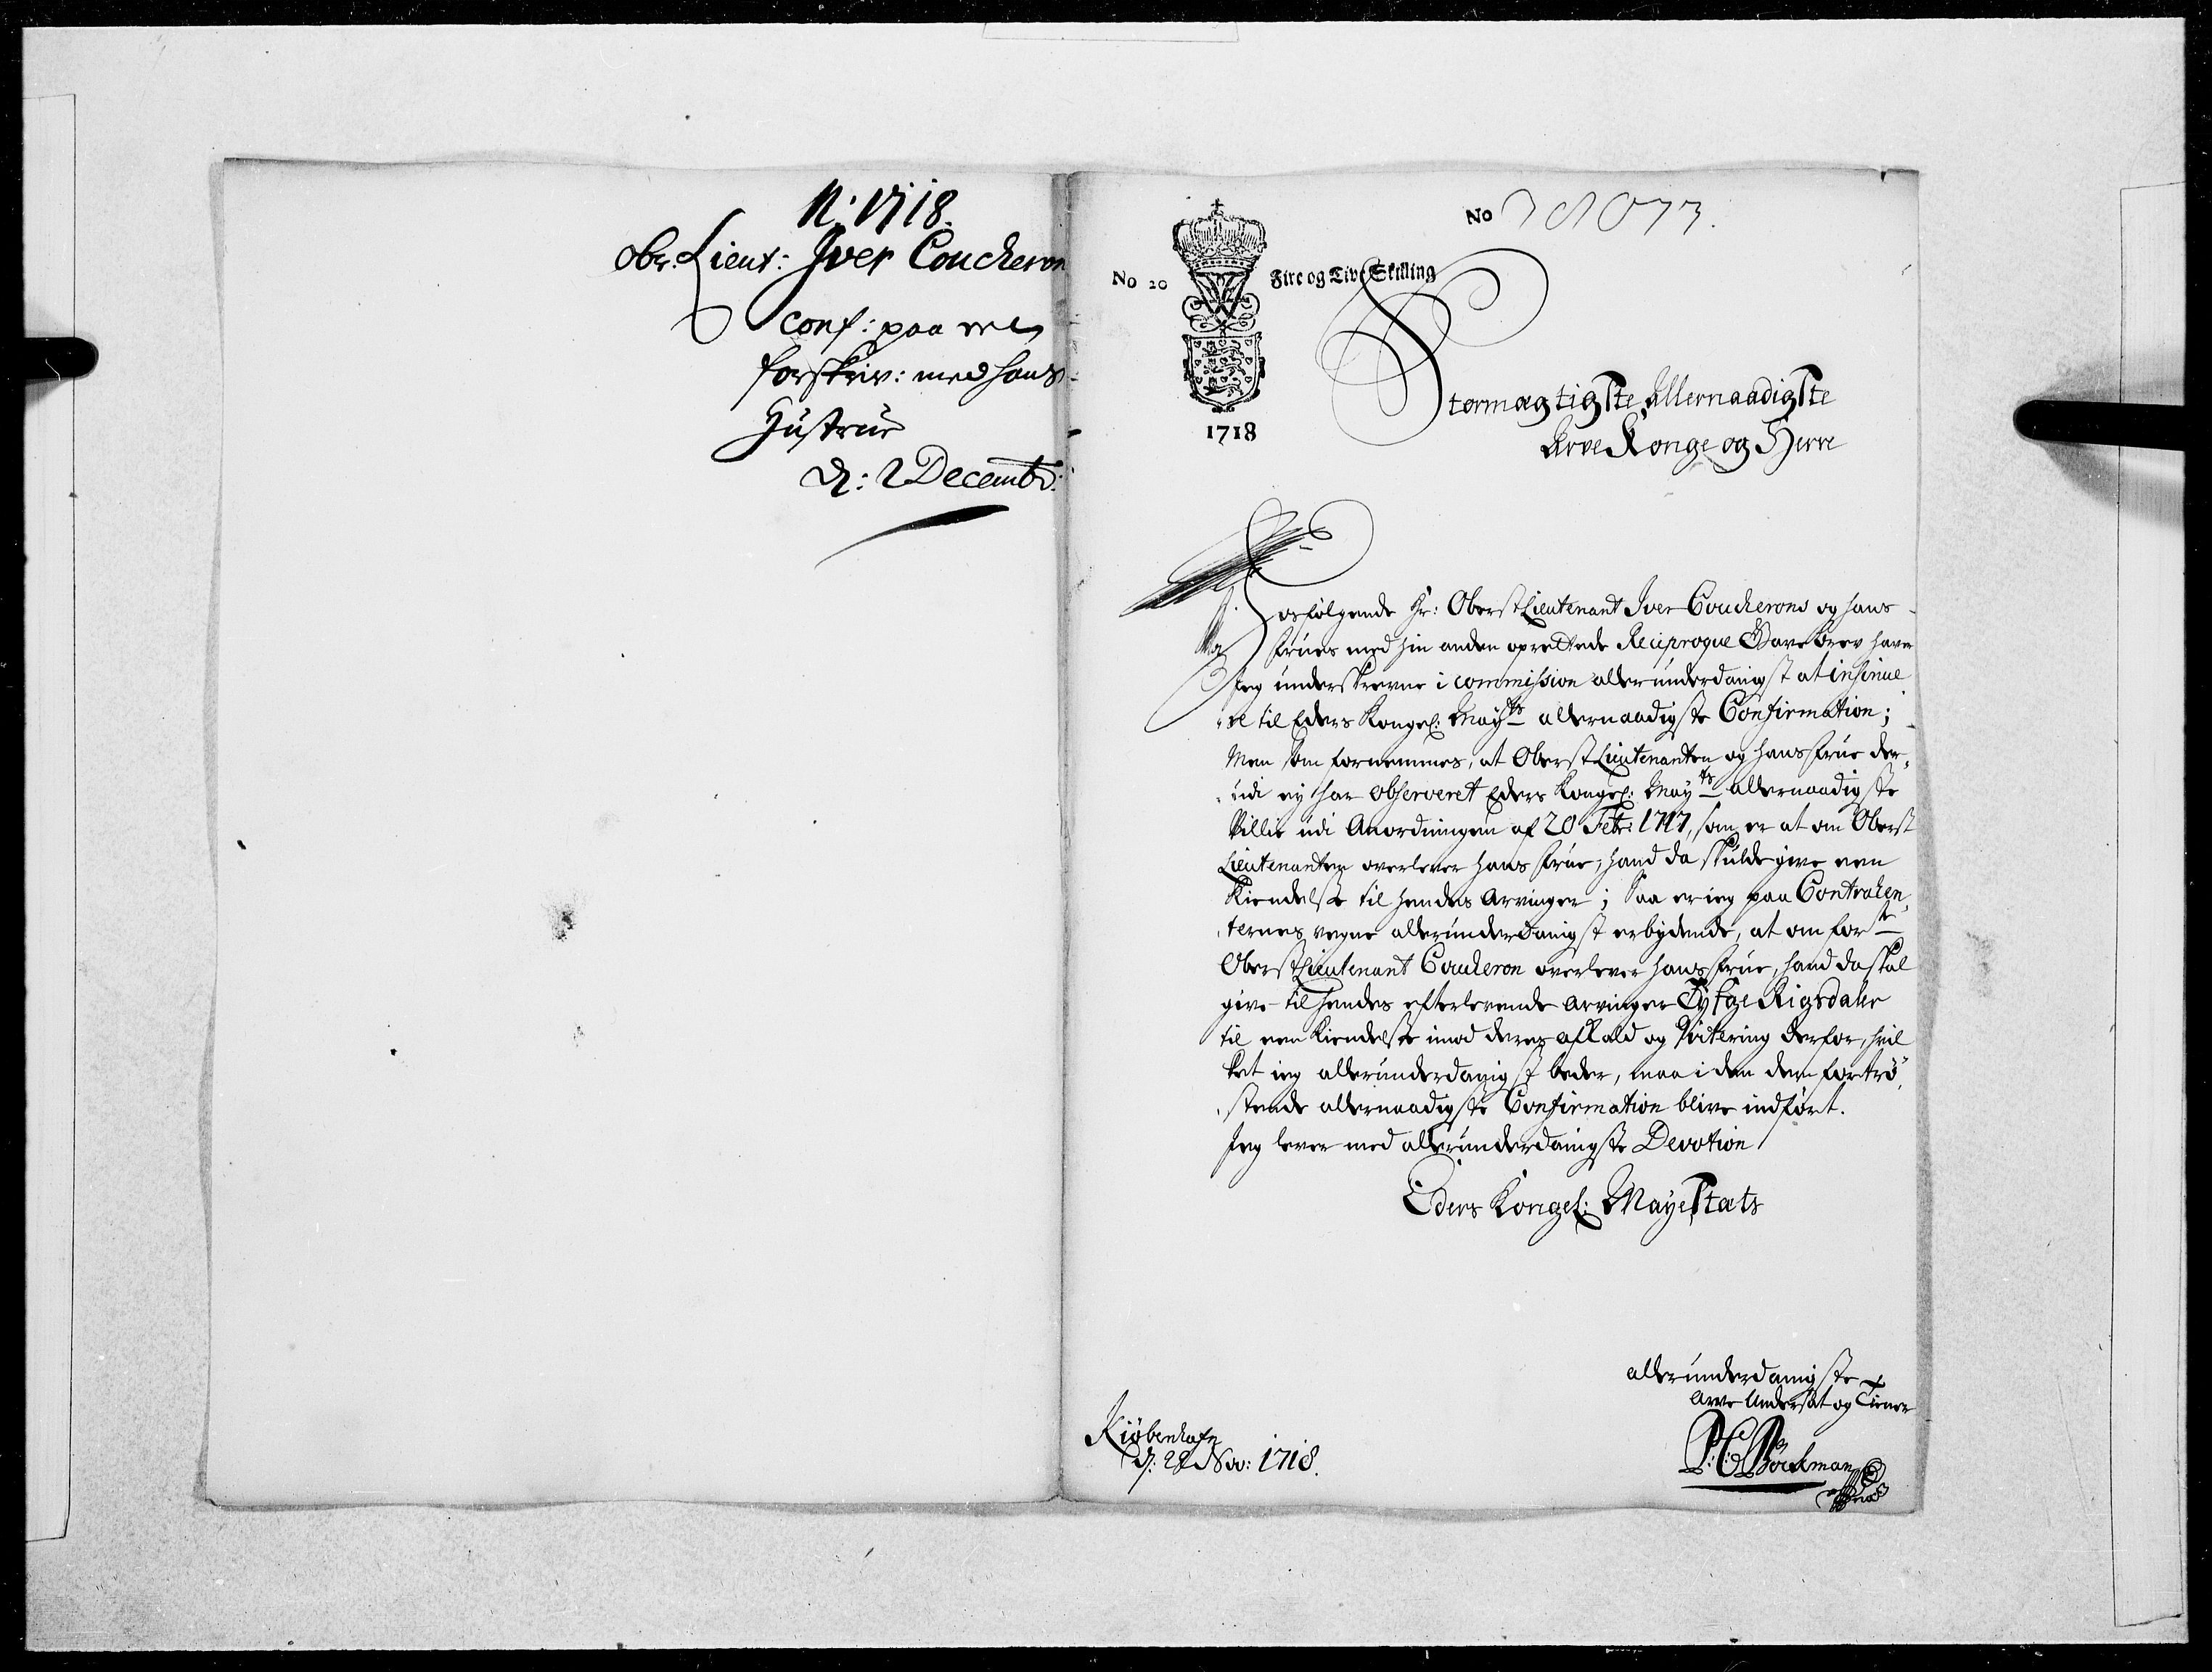 N. 1718.
Obr. Lieut: Iver Coucheron
conf: paa een
forskriv: med hans
Hustrue
d: 2 Decembr:
No 20
Fire og Tive Skilling
1718
Stormægtigste Allernaadigste
Arve Konge og Herre
Hosfølgende Hr: OberstLieutenant Iver Coucherons og hans
Frues med hin anden oprettede Reciproque Gavebrev haver
Jeg underskrevne i commission allerunderdanigst at insinue
re til Eders Kongel: Mayts allernaadigste Confirmation;
Men som fornemmes, at OberstLieutenanten og hans Frue der„
„udi ey har observeret Eders Kongel: Mayts allernaadigste
Villie udi Anordningen af 20 Febr: 1717, som er at om Oberst
Lieutenanten overlever hans Frue, hand da skulde give een
Kiendelse til hendes Arvinger; Saa er ieg paa Contrahen„
„ternes vegne allerunderdanigst erbydende, at om forste
OberstLieutenant Coucheron overlever hans Frue, hand da skal
give til hendes efterlevende Arvinger Tyfge Rigsdaler
til een Kiendelse imod deres afkald og Qvitering derfor, hvil
ket ieg allerunderdanigst beder, maa i den dem fortrø„
„stende allernaadigste Confirmation blive indført.
Jeg lever med allerunderdanigste Devotion
Eders Kongel: Mayestæts
allerunderdanigste
Arve Undersåt og Tiener
Kiøbenhafn
d: 22 Nov: 1718.
P: C: Böckman